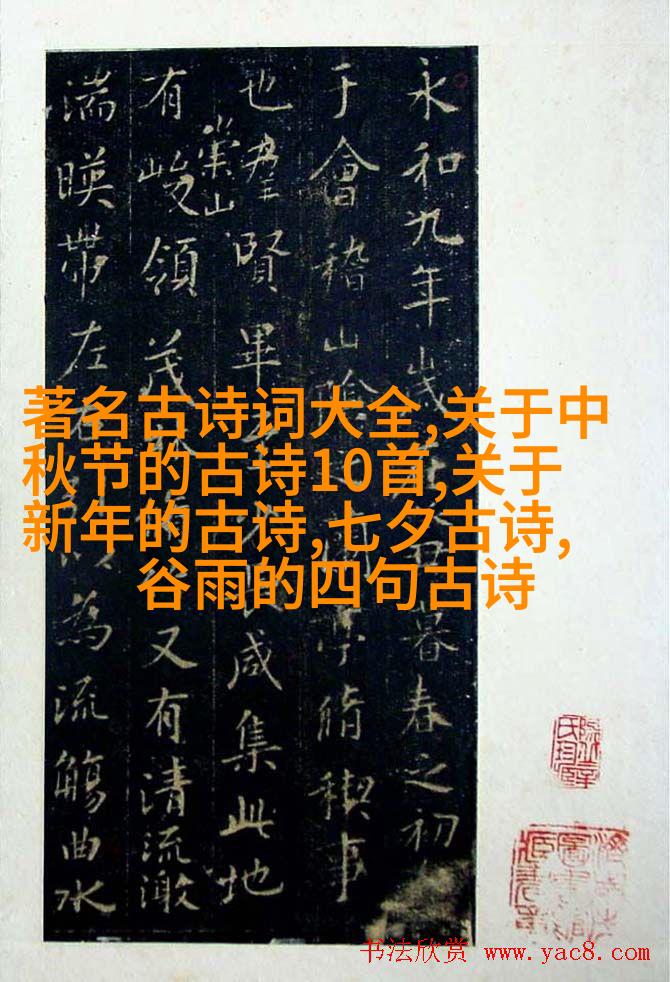 永和九年歲暮春之初
于會稽山陰亭脩稧事
也羣賢畢咸集此地
有崇山峻領茂又有清流激
湍暎帶左右為流觴曲水
著名古诗词大全,关于中
秋节的古诗10首,关于
新年的古诗,七夕古诗,
谷雨的四句古诗
书法欣赏 www.yac8.com